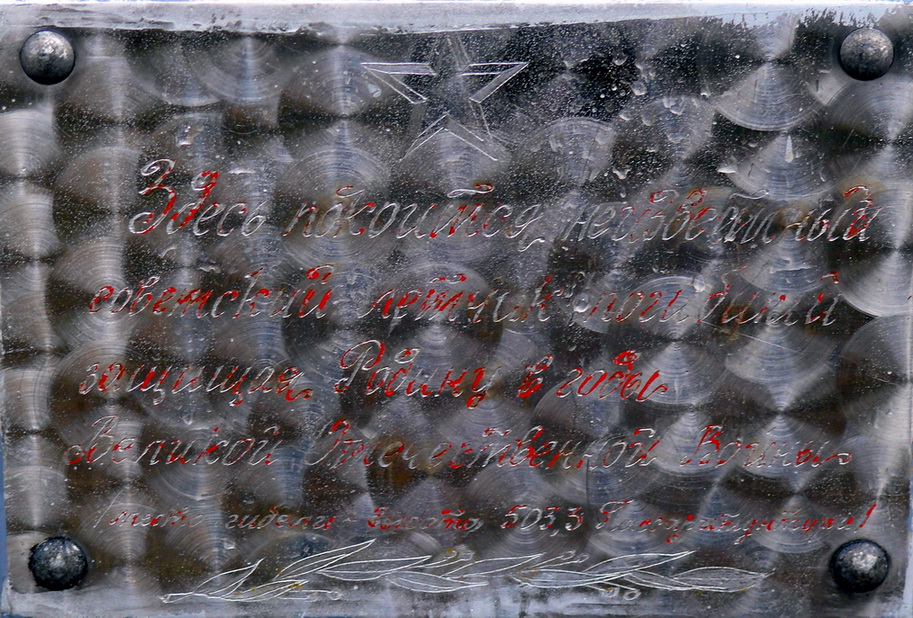 Здесь покоится неизвестный
советский летчик погибший
защищая Родину в годы
Великой Отечественной Войны
гибели высота 503,3